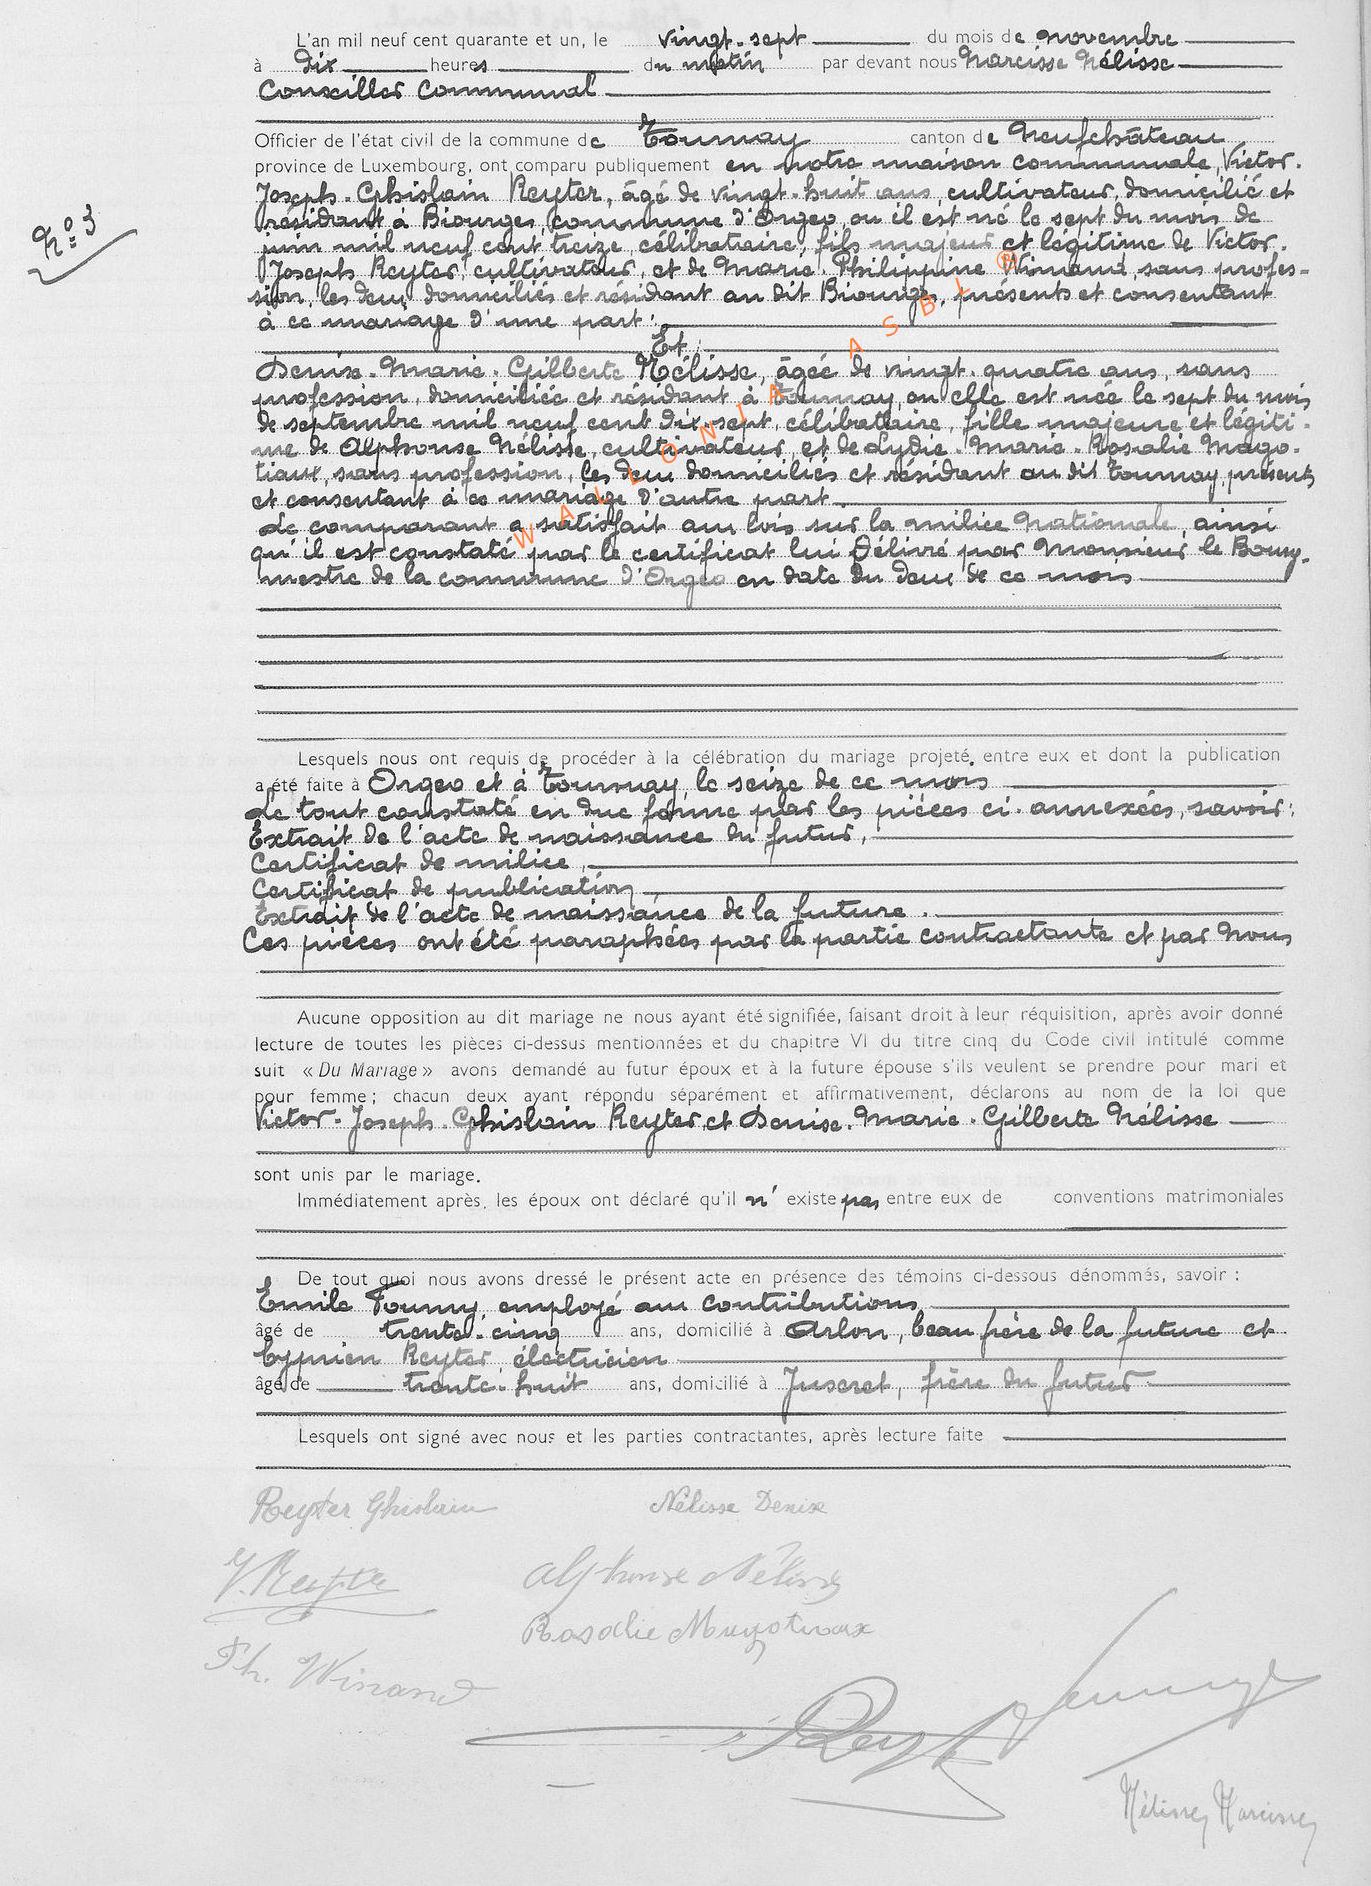 L'an mil neuf cent quarante et un, le vingt-sept du mois de novembre
à dix heures du matin par devant nous Narcisse Nélisse
Conseiller Communal
Officier de l'état civil de la commune de Tournay canton de Neufchâteau
province de Luxembourg, ont comparu publiquement en notre maison communale, Victor-
Joseph-Ghislain Reyter, âgé de vingt-huit ans, cultivateur, domicilié et
résidant à Biourges, commune d'Orgeo où il est né le sept du mois de
juin mil neuf cent treize, célibataire, fils majeur et légitime de Victor-
Joseph Reyter, cultivateur, et de Marie-Philippine Winand, sans profes-
sion, les deux domiciliés et résidant au dit Biourges, présents et consentant
à ce mariage d'une part:
Et
N° 3
Denise-Marie-Gilberte Nélisse, âgée de vingt-quatre ans, sans
profession, domiciliée et résidant à Tournay, où elle est née le sept du mois
de septembre mil neuf cent dix-sept, célibataire, fille majeure et légiti-
me de Alphonse Nélisse, cultivateur, et de Lydie-Marie-Rosalie Mago-
tiaux, sans profession, les deux domiciliés et résidant au dit Tournay présents
et consentant à ce mariage d'autre part.
Le comparant a satisfait aux lois sur la milice nationale, ainsi
qu'il est constaté par le certificat lui délivré par Monsieur le Bourg-
mestre de la commune d'Orgeo en date du deux de ce mois
WALLONIA ASBL ®
Lesquels nous ont requis de procéder à la célébration du mariage projeté, entre eux et dont la publication
a été faite à Orgeo et à Tournay, le seize de ce mois
Le tout constaté en due forme par les pièces ci-annexées, savoir:
Extrait de l'acte de naissance du futur,
Certificat de milice,
Certificat de publication
Extrait de l'acte de naissance de la future.
Ces pièces ont été paraphées par la partie contractante et par Nous
Aucune opposition au dit mariage ne nous ayant été signifiée, faisant droit à leur réquisition, après avoir donné
lecture de toutes les pièces ci-dessus mentionnées et du chapitre VI du titre cinq du Code civil intitulé comme
suit «Du Mariage» avons demandé au futur époux et à la future épouse s'ils veulent se prendre pour mari et
pour femme; chacun deux ayant répondu séparément et affirmativement, déclarons au nom de la loi que
Victor-Joseph-Ghislain Reyter et Denise-Marie-Gilberte Nélisse
sont unis par le mariage.
Immédiatement après, les époux ont déclaré qu'il n' existe pas entre eux de conventions matrimoniales
De tout quoi nous avons dressé le présent acte en présence des témoins ci-dessous dénommés, savoir:
Emile Fourny, employé aux contributions
âgé de trente-cinq ans, domicilié à Arlon, beau frère de la future et
Cyprien Reyter, électricien
âgé de trente-huit ans, domicilié à Juseret, frère du futur
Lesquels ont signé avec nous et les parties contractantes, après lecture faite
Reyter Ghislain Nélisse Denise
V. Reyter Alphonse Nélisse
Rosalie Magotiaux
Ph. Winand
Nélisse, Narcisse